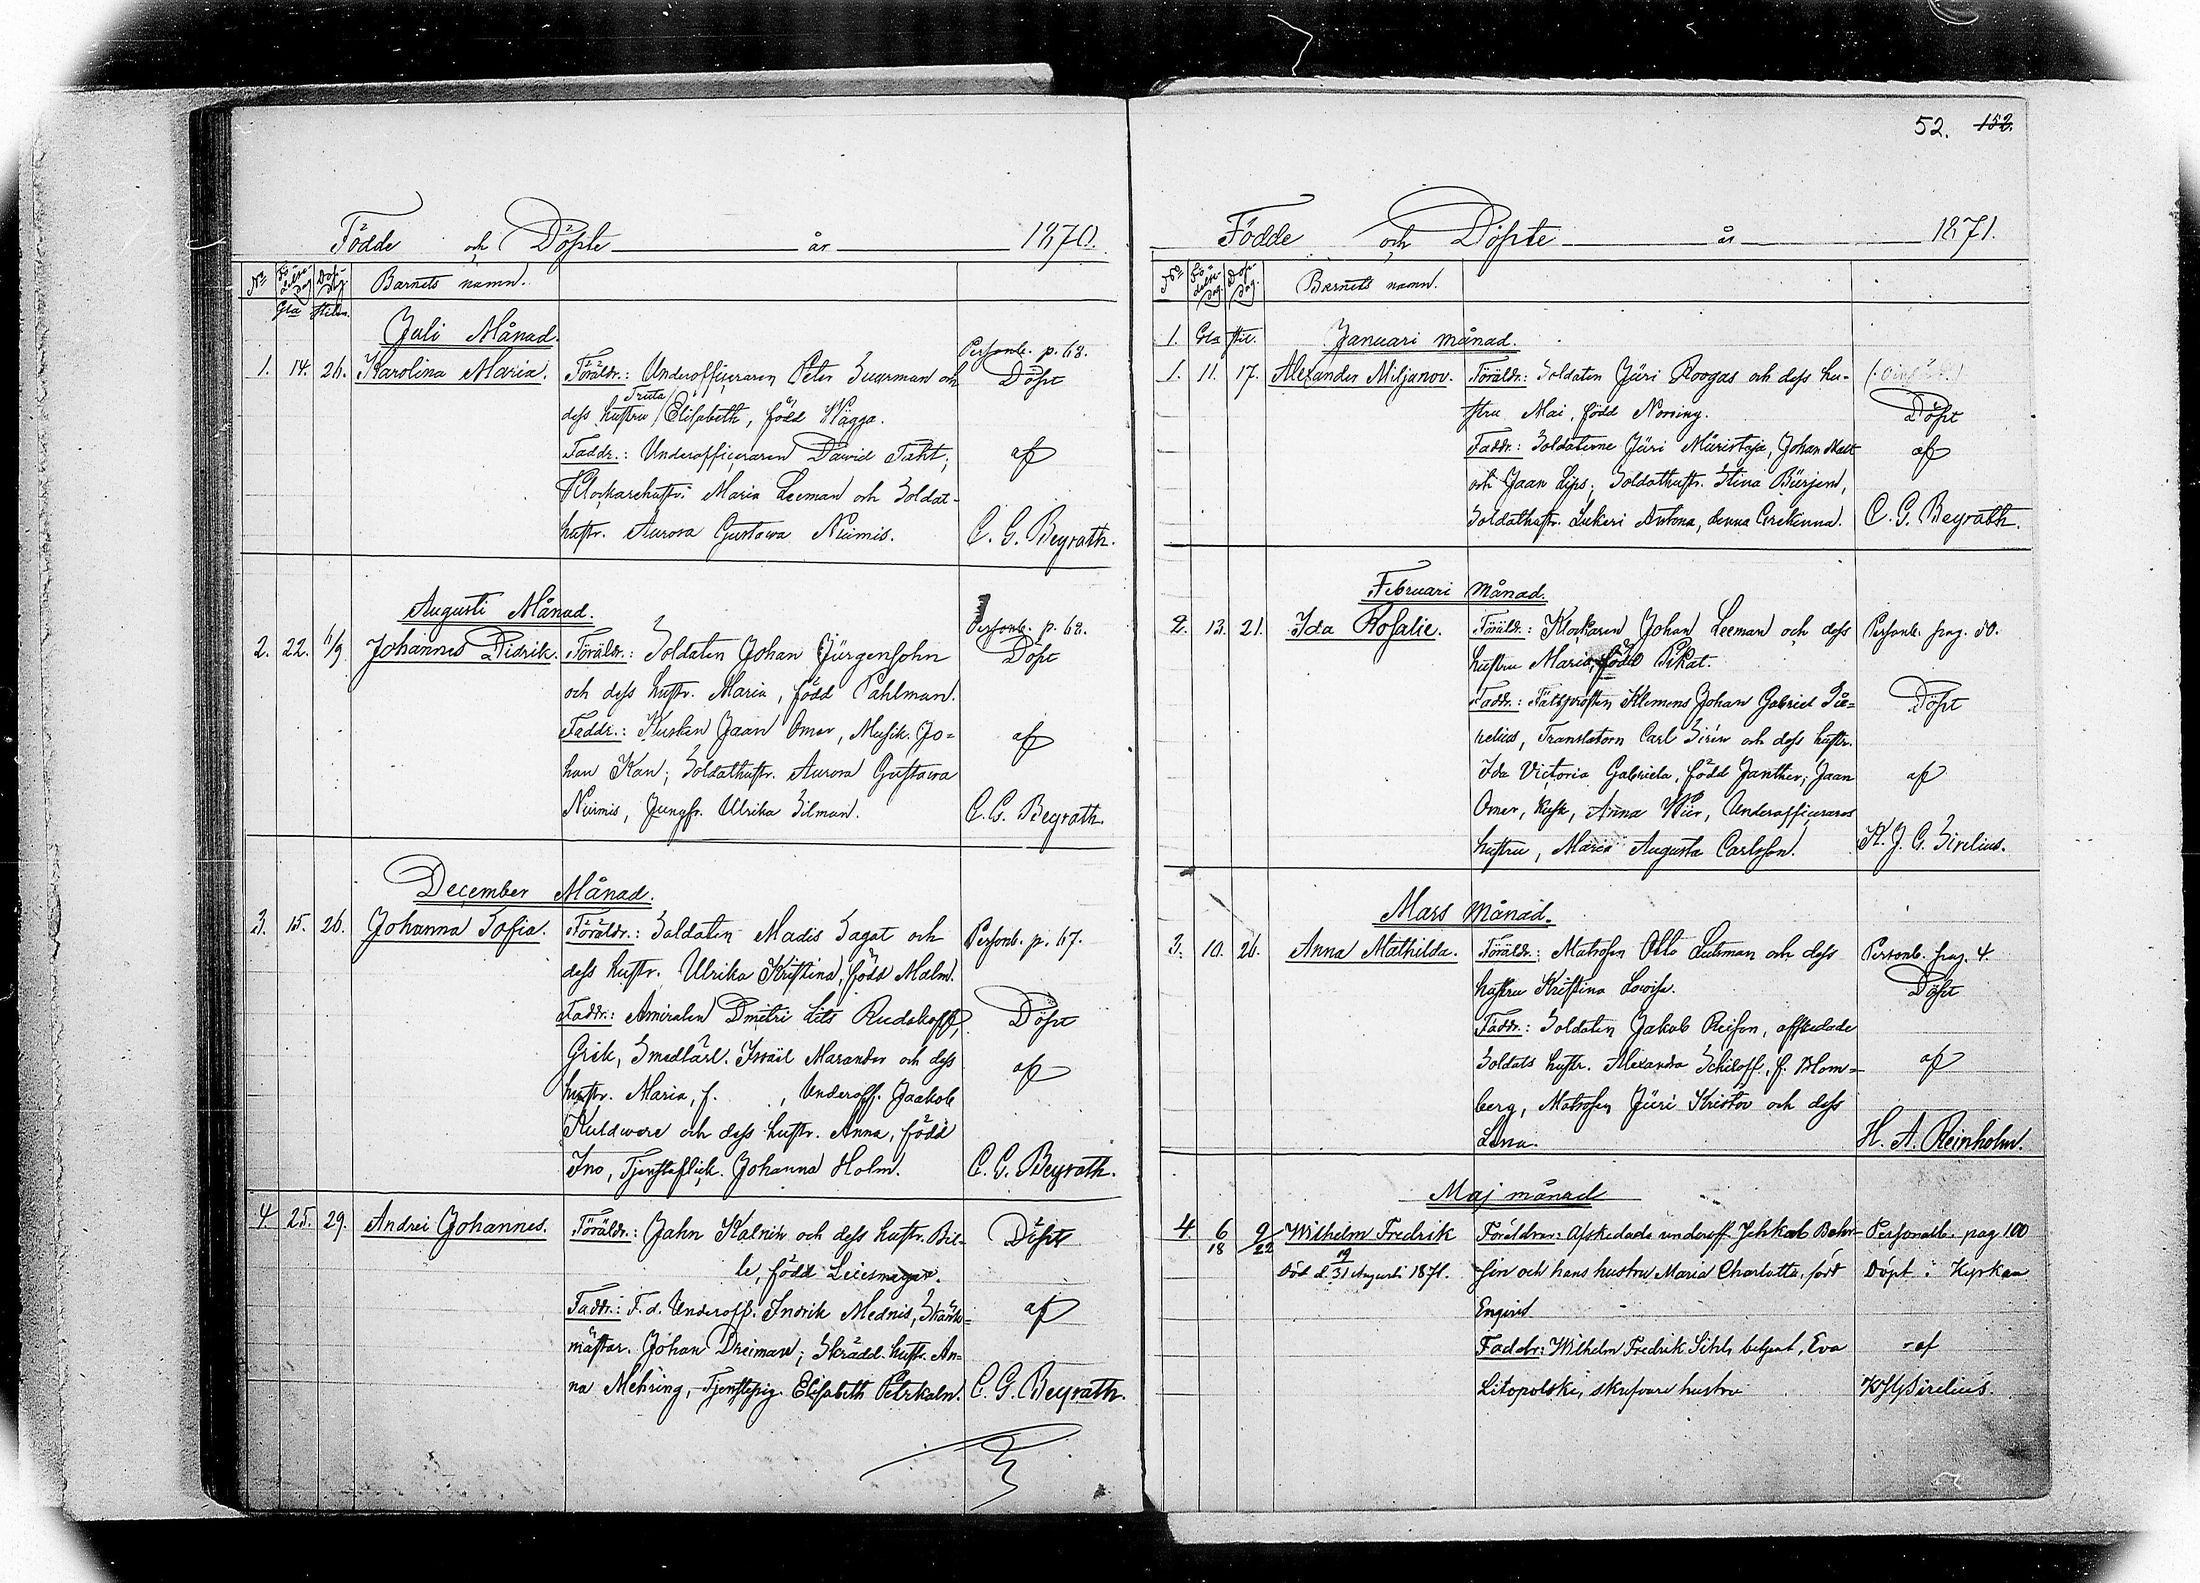 Födde och Döpte år 1870.
No Födelsedag Dopdag Barnets namn.
Gla stilen.
Juli Månad.
Personb. p. 68.
1. 14. 26. Karolina Maria. Föräldr.: Underofficeraren Peter Suurman och Döpt
Truta
dess hustru Elisabeth, född Wägga.
Faddr.: Underofficeraren Dawid Taht; af
Klockarehustr. Maria Leeman och Soldat-
hustr. Aurora Gustawa Niemis. C. G. Beyrath.
Augusti Månad.
Personb. p. 68.
2. 22. 6/9 Johannes Didrik. Föräldr.: Soldaten Johan Jürgensohn Döpt
och dess hustr. Maria, född Pahlman.
Faddr.: Kusken Jaan Omer, Musik. Jo- af
han Kan; Soldathustr. Aurora Gustawa
Niemis, Jungfr. Ulrika Silman. C. G. Beyrath.
December Månad.
3. 15. 26. Johanna Sofia. Föräldr.: Soldaten Madis Sagat och Personb. p. 67.
dess hustr. Ulrika Kristina, född Malm.
Faddr.: Amiralen Dmitri Rudakoff, Döpt
Grek, Smedlärl. Israil Marander och dess af
hustr. Maria, f. , Underoff. Jaakob
Kuldwere och dess hustr. Anna, född
Ino, Tjenstaflick. Johanna Holm. C. G. Beyrath.
4. 25. 29. Andrei Johannes. Föräldr.: Jahn Kalnin och dess hustr. Bil- Döpt
le, född
Faddr.: F. d. Underoff. Indrik Mednis, Skänk- af
mästar. Johan Dreiman; Skrädd. hustr. An-
na Mehring, Elisabeth Petrkaln. C. G. Beyrath.
52. 152.
Födde och Döpte år 1871.
No Födelsedag. Dopdag. Barnets namn.
1. Gla stil. Januari månad.
1. 11. 17. Alexander Miljanov. Föräldr.: Soldaten Jüri Roogas och dess hu-
stru Mai, född Noring. Döpt
Faddr.: Soldaterne Jüri Müristaja, Johan Malt af
och Jaan Lips; Soldathustr. Stina Bürjend,
Soldathustr. Lukeri Antona, denna Grekinna. C. G. Beyrath.
Februari månad.
2. 13. 21. Ida Rosalie. Föräldr.: Klockaren Johan Leeman och dess Personb. pag. 50.
hustru Maria, född Pikat.
Faddr.: Fältprosten Klemens Johan Gabriel Si- Döpt
relius, Translatorn Carl Sirén och dess hustr.
Ida Victoria Gabriela, född Janther; Jaan af
Omer, kusk, Anna Wür, Underofficerarens
hustru, Maria Augusta Carlsson. K. J. G. Sirelius.
Mars Månad.
3. 10. 26. Anna Mathilda. Föräldr.: Matrosen Otto Lutsman och dess Personb. pag. 4.
hustru Kristina Lowisa. Döpt
Faddr.: Soldaten Jakob Reison, afskedade
Soldats hustr. Alexandra Schiloff, f. Blom- af
berg, Matrosen Jüri Kristov och dess
Lena. H. A. Reinholm.
Maj månad
4. 6/18 9/22 Wilhelm Fredrik Föräldrar: Afskedade underoff. Jehkab Behr- Personalb. pag 100
Död d. 19/31 Augusti 1871. sin och hans hustru Maria Charlotta, född Döpt i Kyrkan
Engren
Faddr: Wilhelm Fredrik Sihl, betjent, Eva af
Litopolski, skrifvare hustru KJGSirelius.